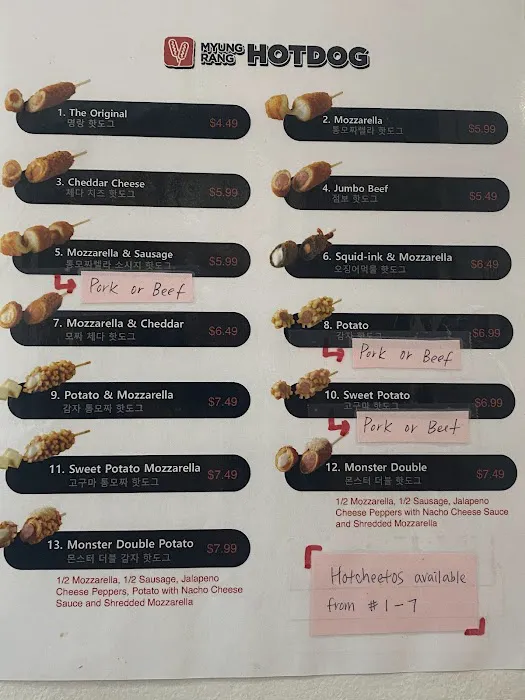 MYUNG RANG HOTDOG
1. The Original
명랑 핫도그
$4.49
2. Mozzarella
통모짜렐라 핫도그
$5.99
3. Cheddar Cheese
체다 치즈 핫도그
$5.99
4. Jumbo Beef
점보 핫도그
$5.49
5. Mozzarella & Sausage
통모짜렐라 소사지 핫도그
$5.99
Pork or Beef
6. Squid-ink & Mozzarella
오징어먹물 핫도그
$6.49
7. Mozzarella & Cheddar
모짜 체다 핫도그
$6.49
8. Potato
감자 핫도그
$6.99
Pork or Beef
9. Potato & Mozzarella
감자 통모짜 핫도그
$7.49
10. Sweet Potato
고구마 핫도그
$6.99
Pork or Beef
11. Sweet Potato Mozzarella
고구마 통모짜 핫도그
$7.49
12. Monster Double
몬스터 더블 핫도그
$7.49
1/2 Mozzarella, 1/2 Sausage, Jalapeno
Cheese Peppers with Nacho Cheese Sauce
and Shredded Mozzarella
13. Monster Double Potato
몬스터 더블 감자 핫도그
$7.99
1/2 Mozzarella, 1/2 Sausage, Jalapeno
Cheese Peppers, Potato with Nacho Cheese
Sauce and Shredded Mozzarella
Hotcheetos available
from #1-7